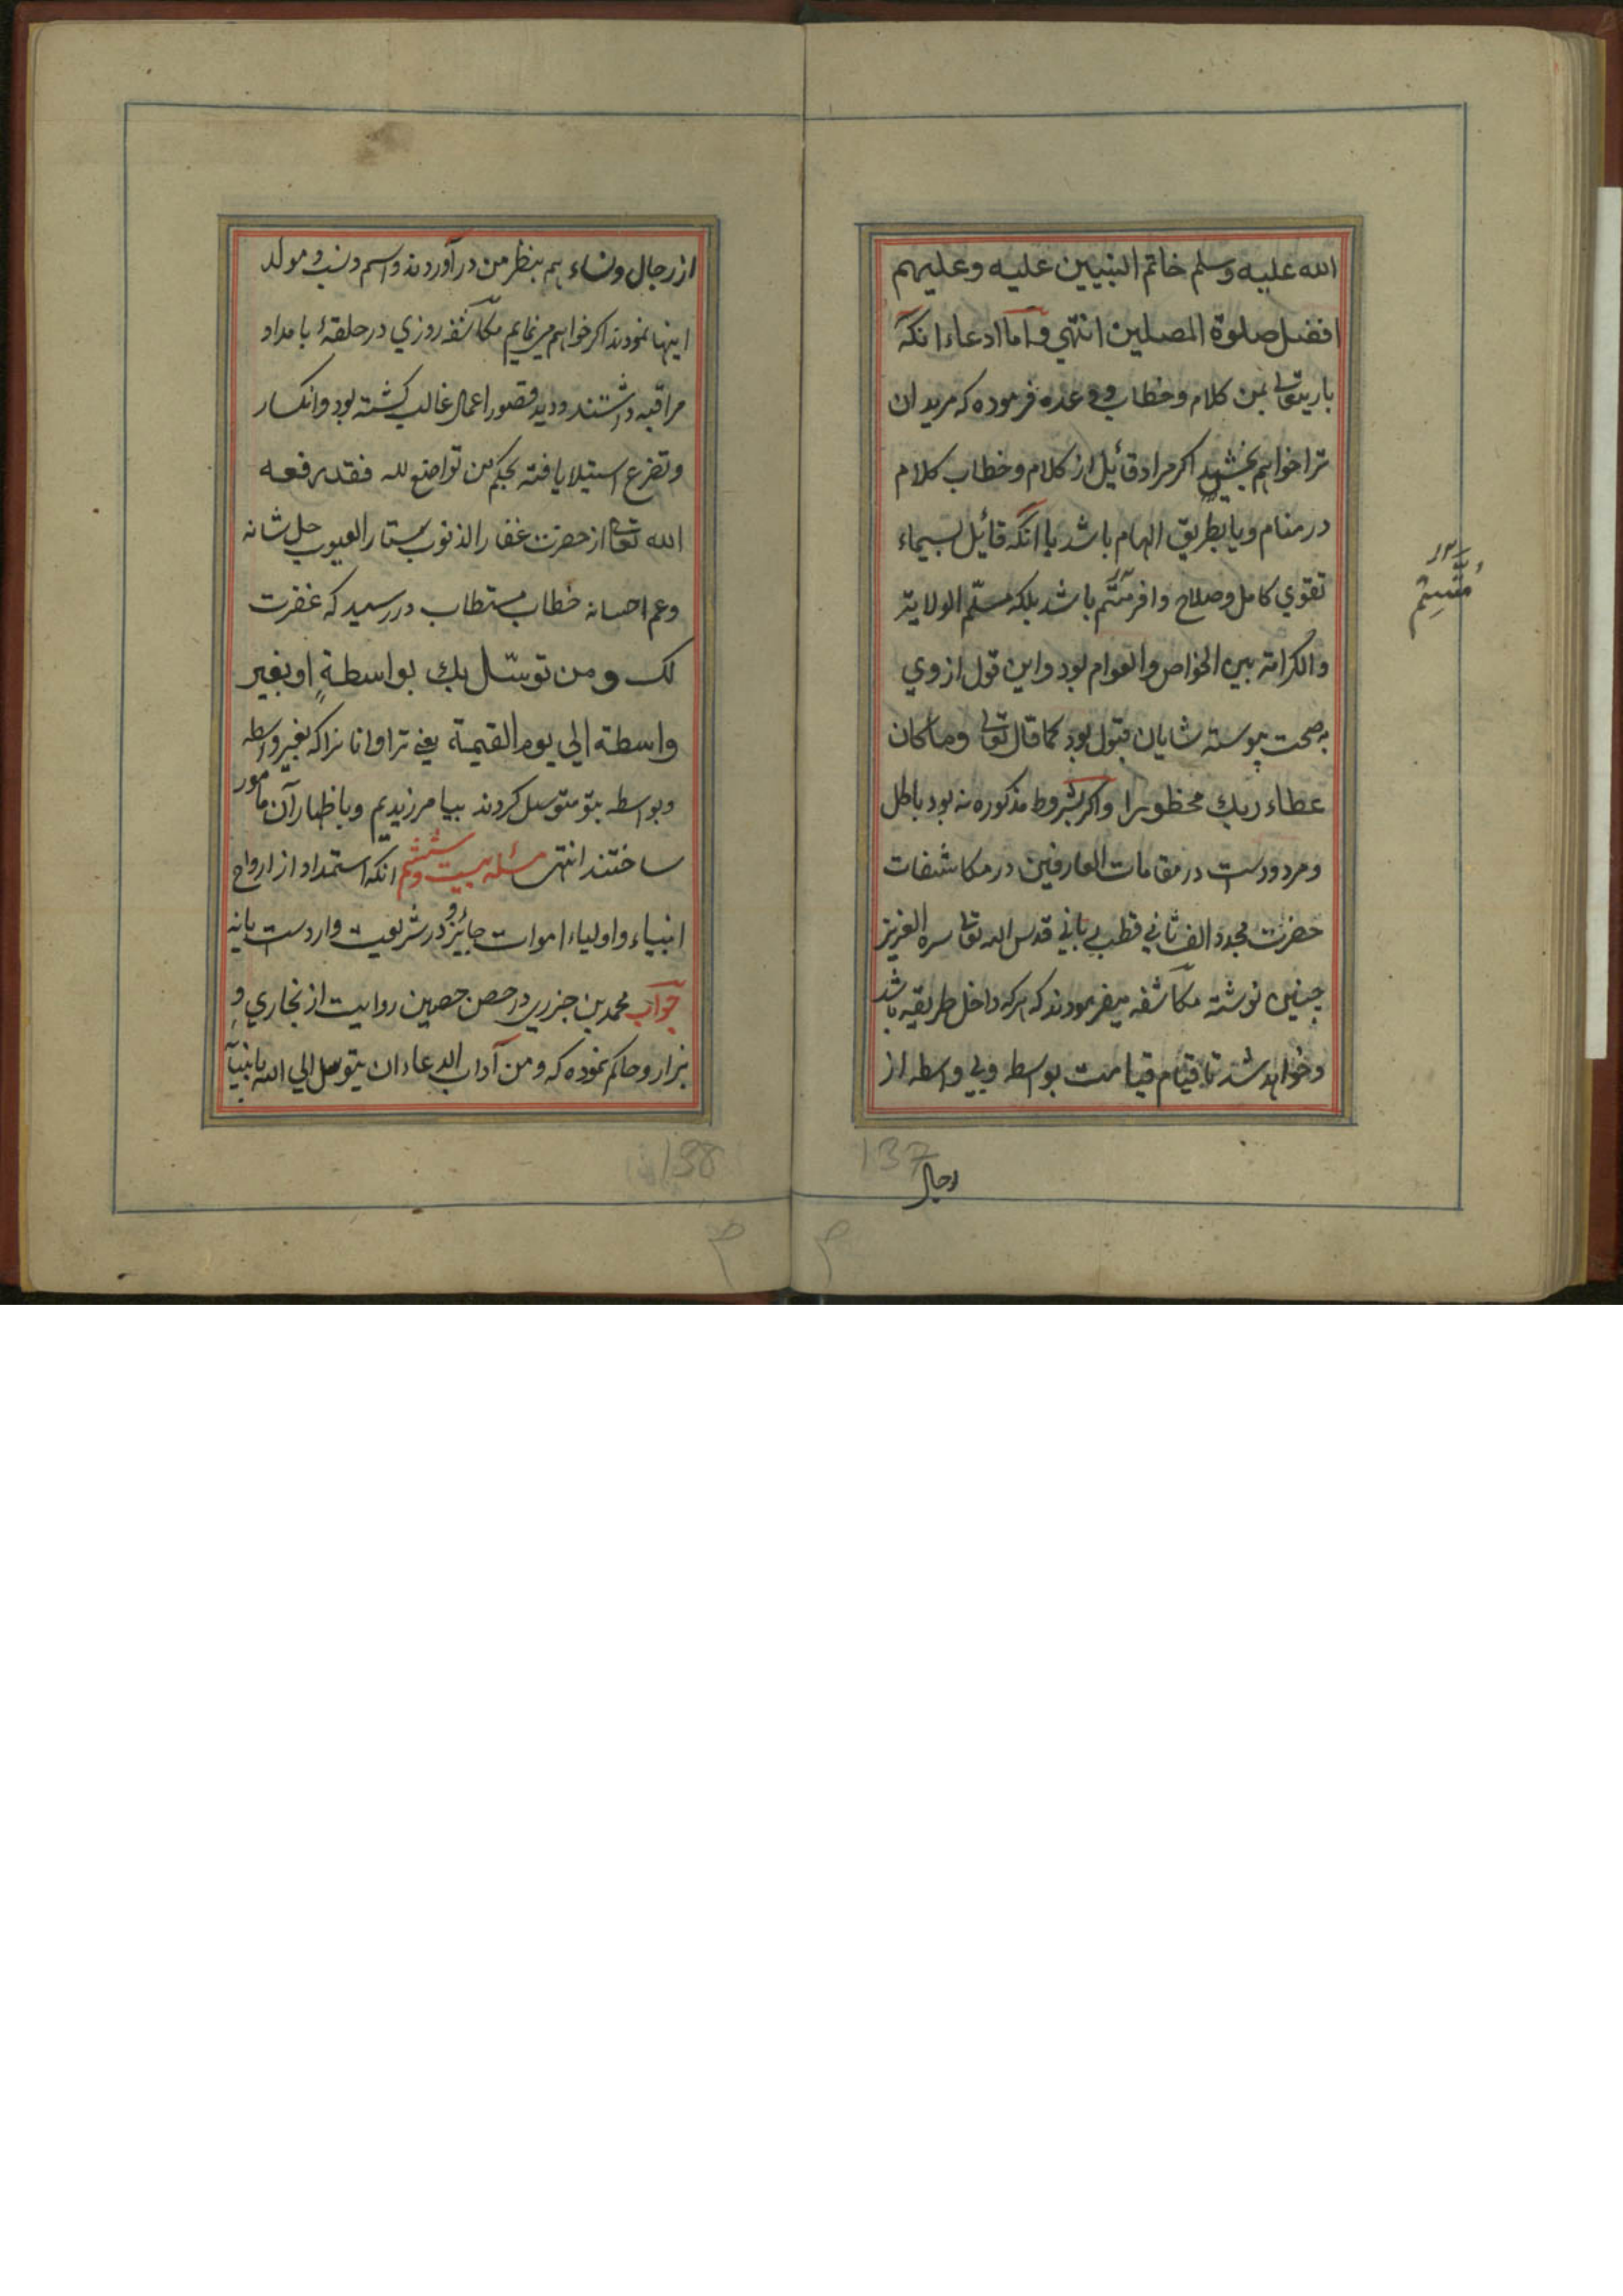 الله عليه وسلم خاتم النبيين عليه وعليهم
افضل صلوة المصلين انتهي واما ادعاء انكه
باريتعالى بمن كلام وخطاب و وعده فرموده كه مريدان
ترا خواهم بخشيد اكر مراد قائيل از كلام وخطاب كلام
در منام ويا بطريق الهام باشد يا انكه قائيل بسيماء
تقوي كامل وصلاح وافر متّسم باشد بلكه مسلّم الولاية
والكرامة بين الخواص والعوام بود واين قول از وي
بصحت پيوسته شايان قبول بود كما قال تعالى وما كان
عطاء ربك محظورا واكر بشروط مذكوره نه بود باطل
ومردودست در مقامات العارفين در مكاشفات
حضرت مجدد الف ثاني قطب رباني قدس الله تعالى سره العزيز
چنين نوشته مكاشفه ميفرمودند كه هركه داخل طريقه باشد
وخواهد شد تا قيام قيامت بواسطه وبي واسطه از
مُتَّسِم
١٢
137
رجال
از رجال ونساء همه بنظر من در آوردند واسم ونسب و مولد
اينها نمودند اكر خواهم مي نمايم مكاشفه روزي در حلقهٔ بامداد
مراقبه داشتند و ديد قصور اعمال غالب كشته بود وانكسار
وتضرع استيلا يافته بحكم من تواضع لله فقد رفعه
الله تعالى از حضرت غفار الذنوب ستار العيوب جل شانه
وعم احسانه خطاب مستطاب در رسيد كه غفرت
لك ومن توسّل بك بواسطةٍ او بغير
واسطة الي يوم القيمة يعني ترا وانانرا كه بغير واسطه
وبواسطه بتو متوسل كردند بيامرزيديم وباظهار آن مامور
ساختند انتهى مسئله بيست وششم انكه استمداد از ارواح
انبياء واولياء اموات جائيز و در شريعت واردست يا نه
جواب محمد بن جزري در حصن حصين روايت از بخاري و
بزار وحاكم نموده كه ومن آداب الدعاء ان يتوسل الي الله بانبيآ
138